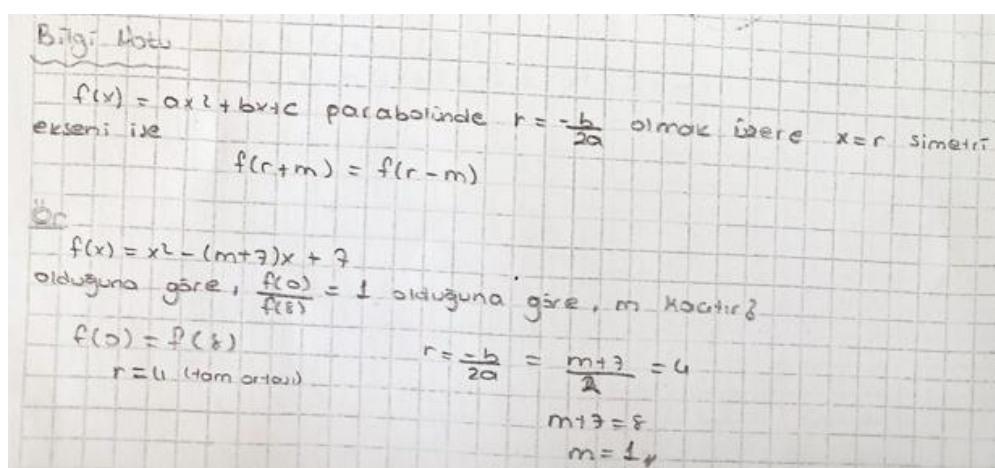 Bilgi Notu
f(x) = ax² + bx+c parabolünde r = -b/2a olmak üzere x=r simetri
ekseni ise
f(r+m) = f(r-m)
Ör
f(x) = x² - (m+7)x + 7
olduğuna göre, f(0)/f(8) = 1 olduğuna göre, m kaçtır?
f(0) = f(8)
r=4 (tam ortası)
r = -b/2a = m+7/2 = 4
m+7=8
m=1